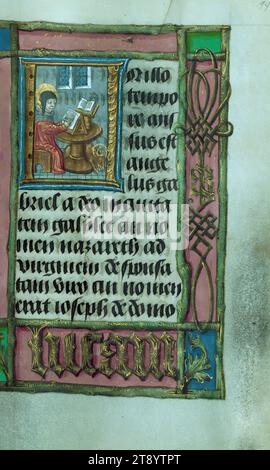 n illo
tempo
re mis
sus est
ange
lus ga
briel a deo in ciuita
tem galilee cui no
men nazareth ad
virginem desponsa
tam viro cui nomen
erat ioseph de domo
lucam
alamy - 2T81YTPT